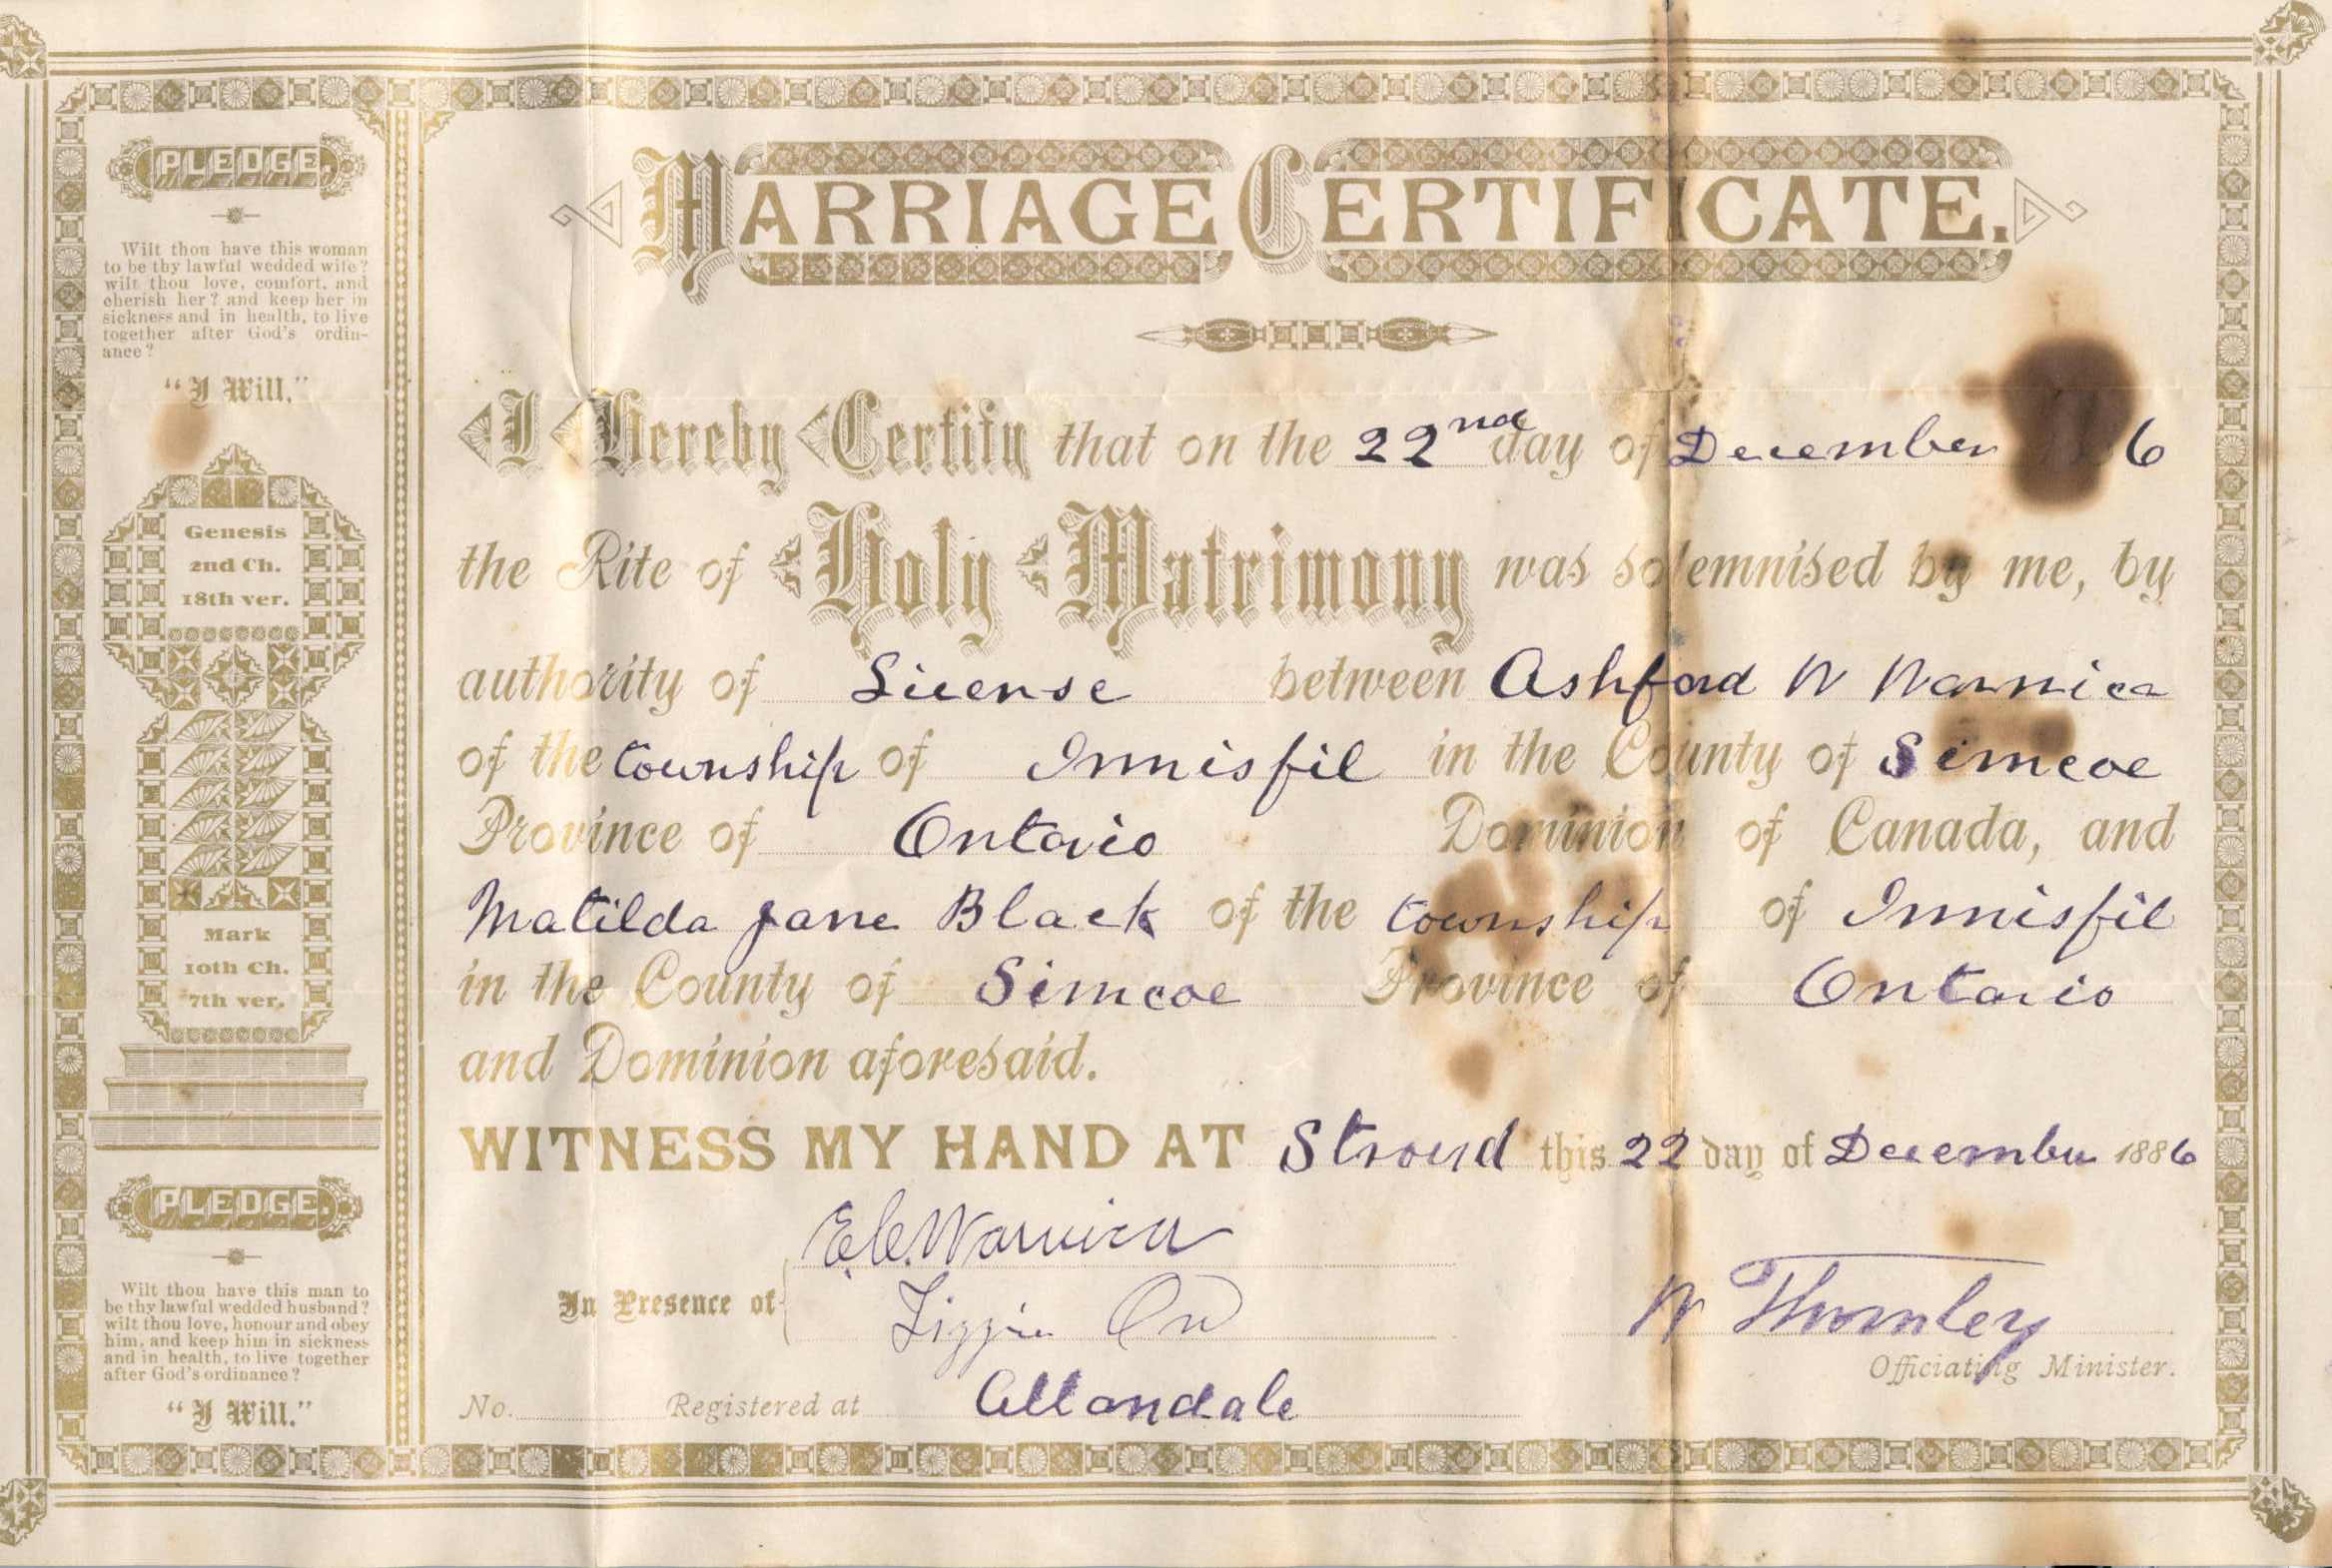 PLEDGE.
Wilt thou have this woman
to be thy lawful wedded wife?
wilt thou love, comfort, and
cherish her? and keep her in
sickness and in health, to live
together after God's ordin-
ance?
"I Will."
Genesis
2nd Ch.
18th ver.
Mark
10th Ch.
7th ver.
PLEDGE.
Wilt thou have this man to
be thy lawful wedded husband?
wilt thou love, honour and obey
him, and keep him in sickness
and in health, to live together
after God's ordinance?
"I Will."
MARRIAGE CERTIFICATE.
I Hereby Certify that on the 22nd day of December 6
the Rite of Holy Matrimony was solemnised by me, by
authority of License between Ashford W Warnica
of the township of Innisfil in the County of Simcoe
Province of Ontario Dominion of Canada, and
Matilda Jane Black of the township of Innisfil
in the County of Simcoe Province of Ontario
and Dominion aforesaid.
WITNESS MY HAND AT Stroud this 22 day of December 1886
In Presence of
Warnica
Lizzie
W Thornley
Officiating Minister.
No. Registered at Allandale